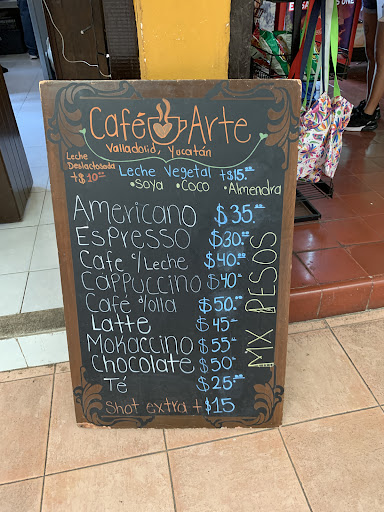 Café Arte
Valladolid, Yucatán
Leche Deslactosada +$10.00
Leche Vegetal +$15.00
•Soya •Coco •Almendra
Americano $35.00
Espresso $30.00
Cafe c/Leche $40.00
Cappuccino $40.00
Café d/olla $50.00
Latte $45.00
Mokaccino $55.00
Chocolate $50.00
Té $25.00
MX PESOS
Shot extra +$15